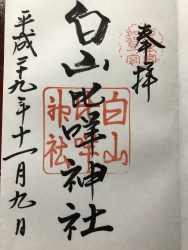 奉拝
白山比咩神社
白山
神社
平成廿九年十一月九日